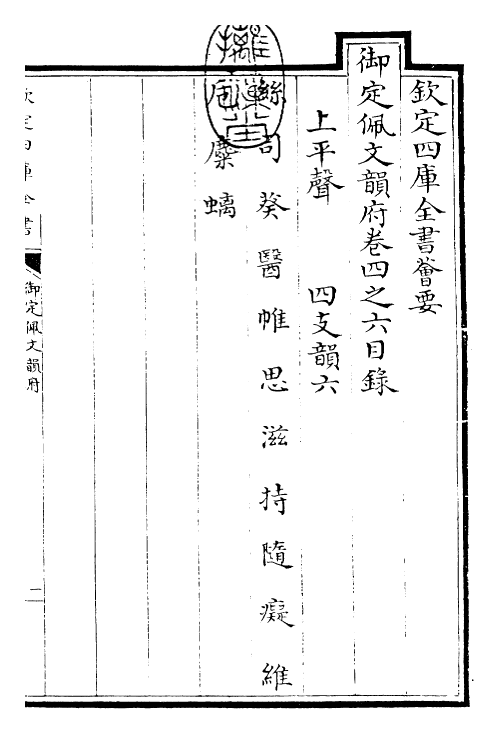 欽定四庫全書薈要
御定佩文韻府卷四之六目錄
上平聲 四支韻六
絲 司 葵 醫 帷 思 滋 持 隨 癡 維
卮 麋 螭
欽定四庫全書
御定佩文韻府
二